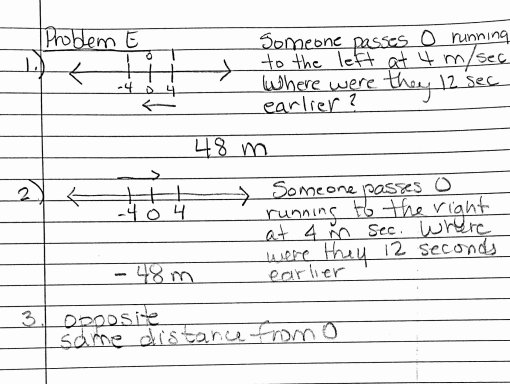 Problem E
1.) Someone passes 0 running
to the left at 4 m/sec
Where were they 12 sec
earlier?
0
-4 0 4
48 m
2) Someone passes 0
-4 0 4
running to the right
at 4 m sec. Where
were they 12 seconds
earlier
-48 m
3. opposite
same distance from 0